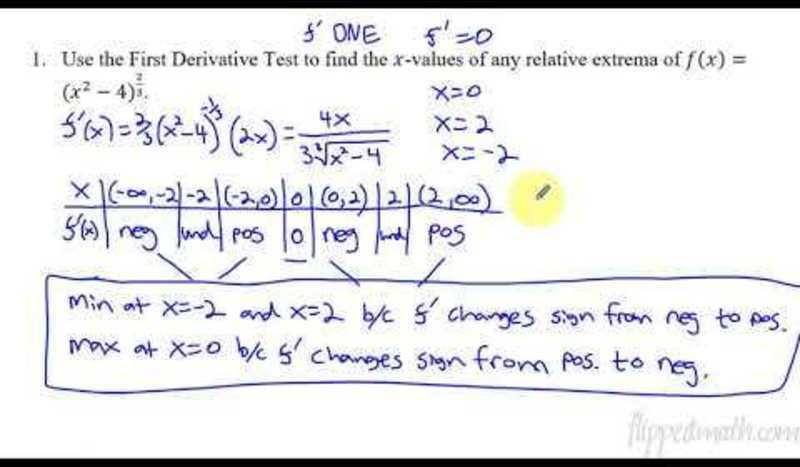 f' ONE f'=0
1. Use the First Derivative Test to find the x-values of any relative extrema of f(x) =
(x² − 4)^(2/3).
x=0
f'(x)=2/3(x²-4)^(-1/3)(2x)= 4x / 3∛x²-4
x=2
x=-2
x | (-∞,-2) | -2 | (-2,0) | 0 | (0,2) | 2 | (2,∞)
f'(x) | neg | und | pos | 0 | neg | und | pos
Min at x=-2 and x=2 b/c f' changes sign from neg to pos.
max at x=0 b/c f' changes sign from pos. to neg.
flippedmath.com